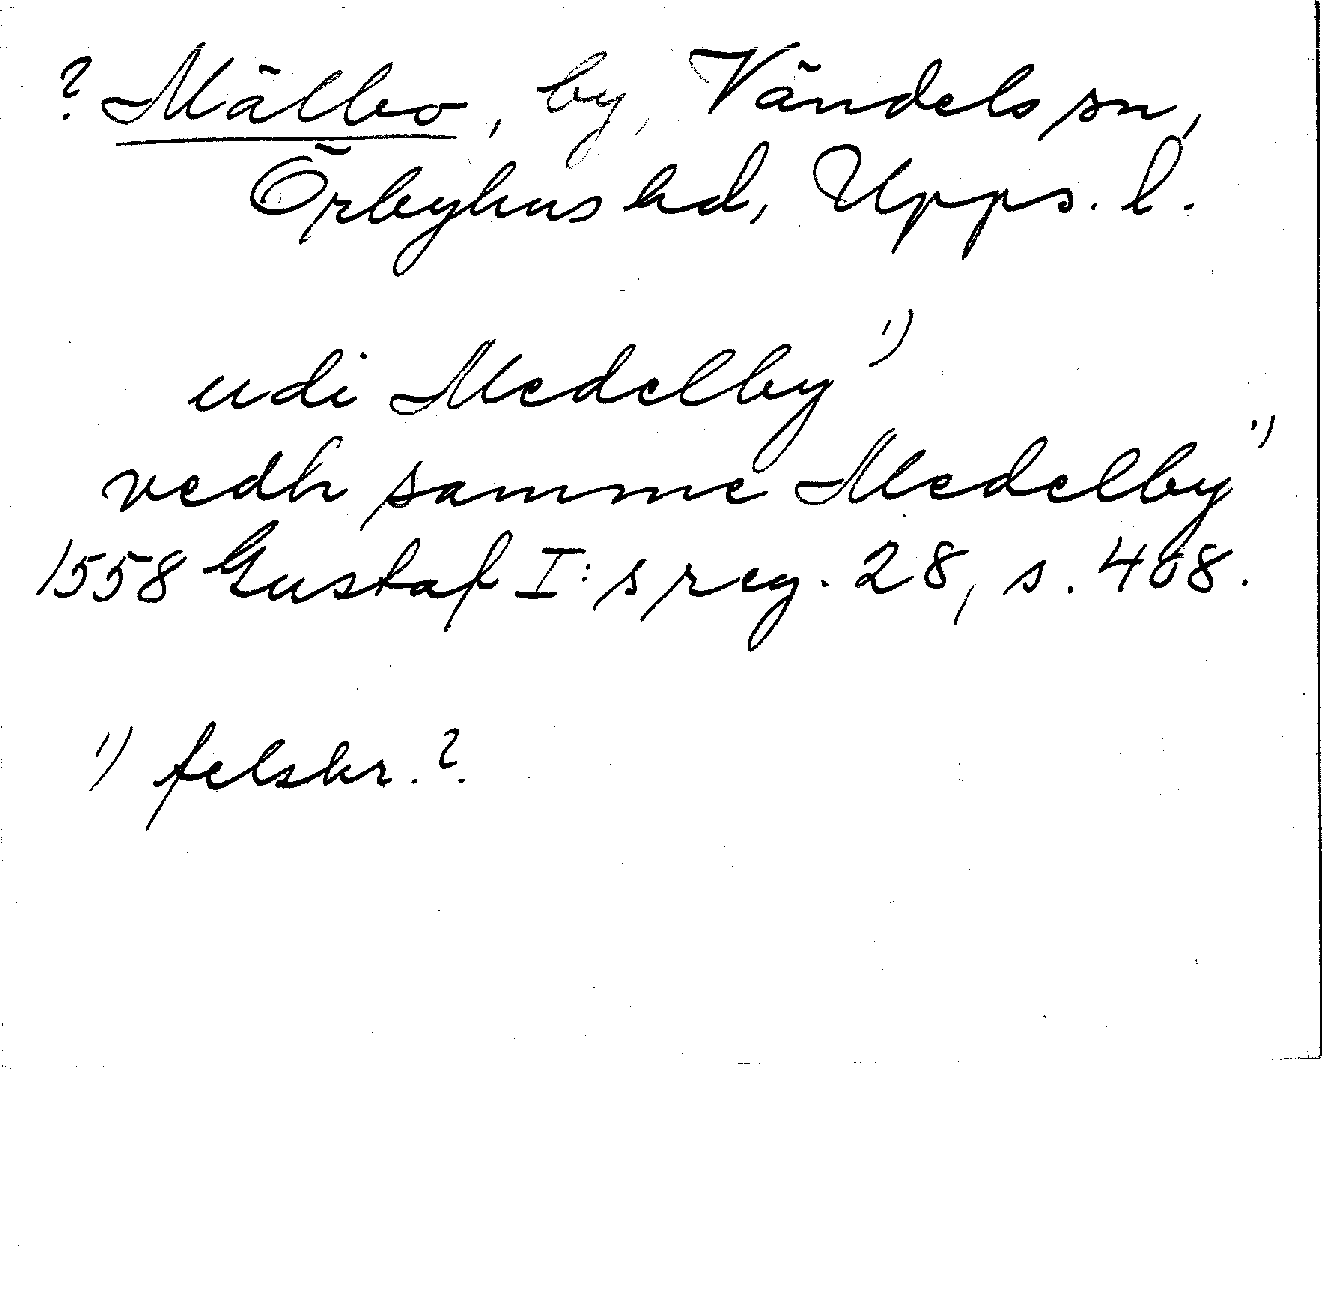 ? Mälbo, by, Vändels sn,
Örbyhus hd, Upps. l.
udi Medelby¹)
vedh samme Medelby¹)
1558 Gustaf I:s reg. 28, s. 408.
¹) felskr.?